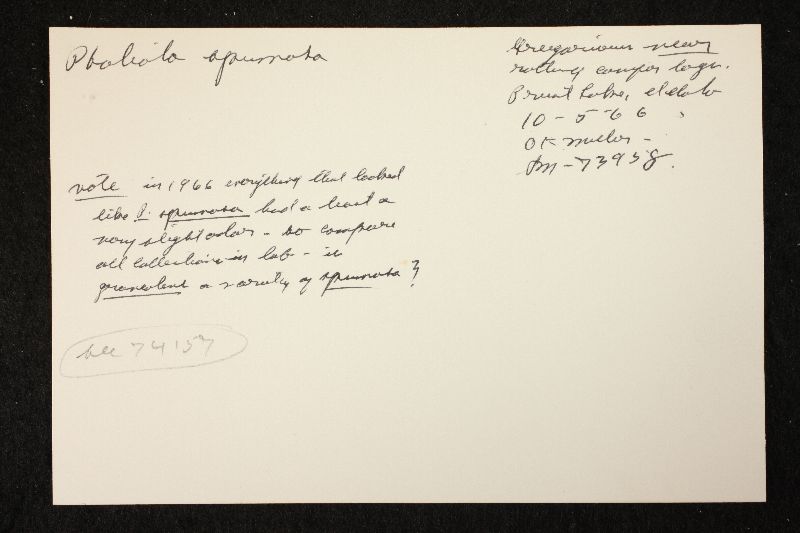 Pholiota spumosa
Gregarious near
rotting conifer logs.
Priest Lake, Idaho
10-5-66
OK Miller -
Sm-73938.
note in 1966 everything that looked
like P. spumosa had at least a
very slight odor - so compare
all collections in lab - is
graveolens a variety of spumosa?
see 74157